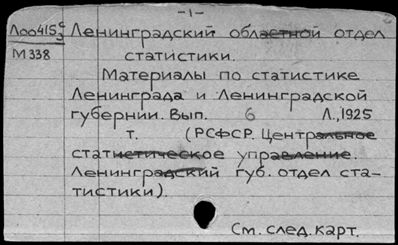 -1-
Л00415 с/з Ленинградский областной отдел
М338 статистики.
Материалы по статистике
Ленинграда и Ленинградской
губернии. Вып. 6 Л., 1925
т. (РСФСР. Центральное
статистическое управление.
Ленинградский губ. отдел ста-
тистики).
См. след. карт.